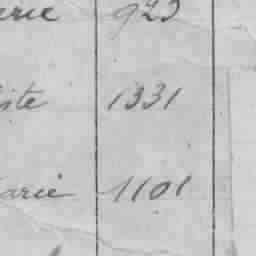 erie 923
iste 1331
arie 1101